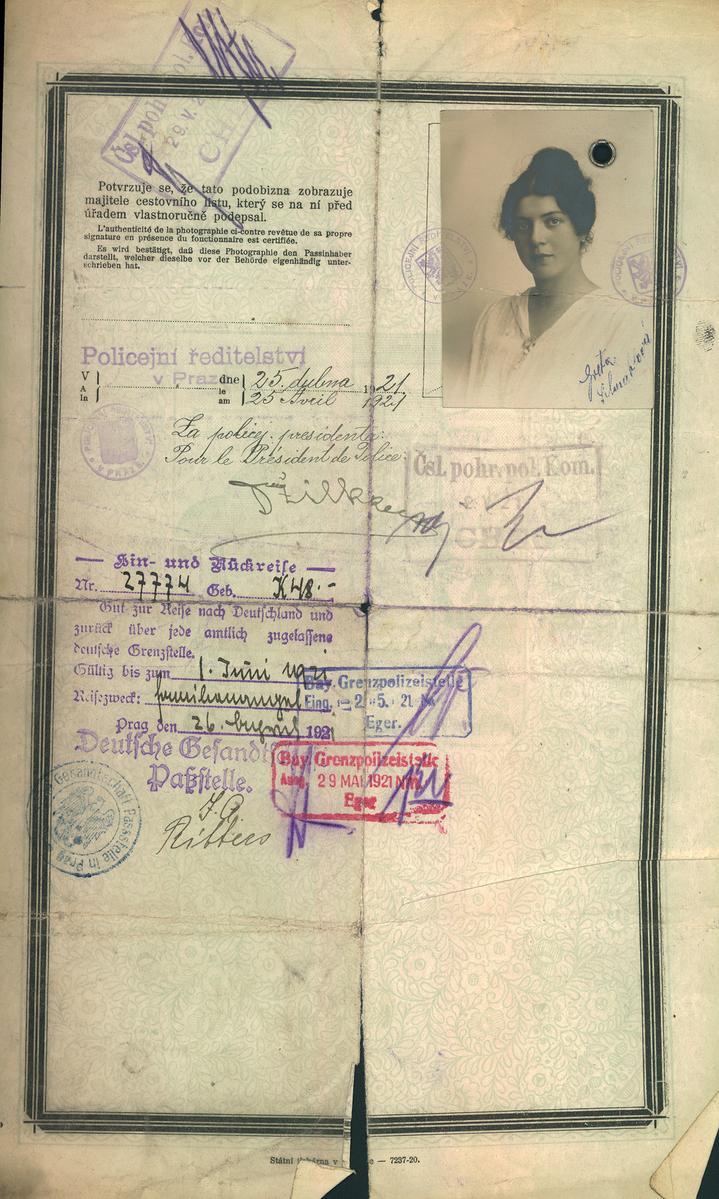 Čsl. pohr. pol.
29. V. 2
CH
Potvrzuje se, že tato podobizna zobrazuje
majitele cestovního listu, který se na ní před
úřadem vlastnoručně podepsal.
L'authenticité de la photographie ci-contre revêtue de sa propre
signature en présence du fonctionnaire est certifiée.
Es wird bestätigt, daß diese Photographie den Passinhaber
darstellt, welcher dieselbe vor der Behörde eigenhändig unter-
schrieben hat.
Greta
Policejní ředitelství
v Praze
V
A
In
dne
le
am
25. dubna 1921
25 Avril 1921
Za policej. presidenta:
Pour le Président de Police:
Čsl. pohr. pol. Kom.
CH
Hin- und Rückreise
Nr. 27774 Geb. K 48.-
Gut zur Reise nach Deutschland und
zurück über jede amtlich zugelassene
deutsche Grenzstelle.
Gültig bis zum 1. Juni 1921
Reisezweck:
Prag den 26. 192
Deutsche Gesandt
Paßstelle.
Bay. Grenzpolizeistelle
Eing. 2. 5. 21
Eger.
Bay. Grenzpolizeistelle
Ausg. 29 MAI 1921 Nm.
Eger
Gesandtschaft Passstelle in Prag
I. A.
Státní tiskárna v — 7237-20.